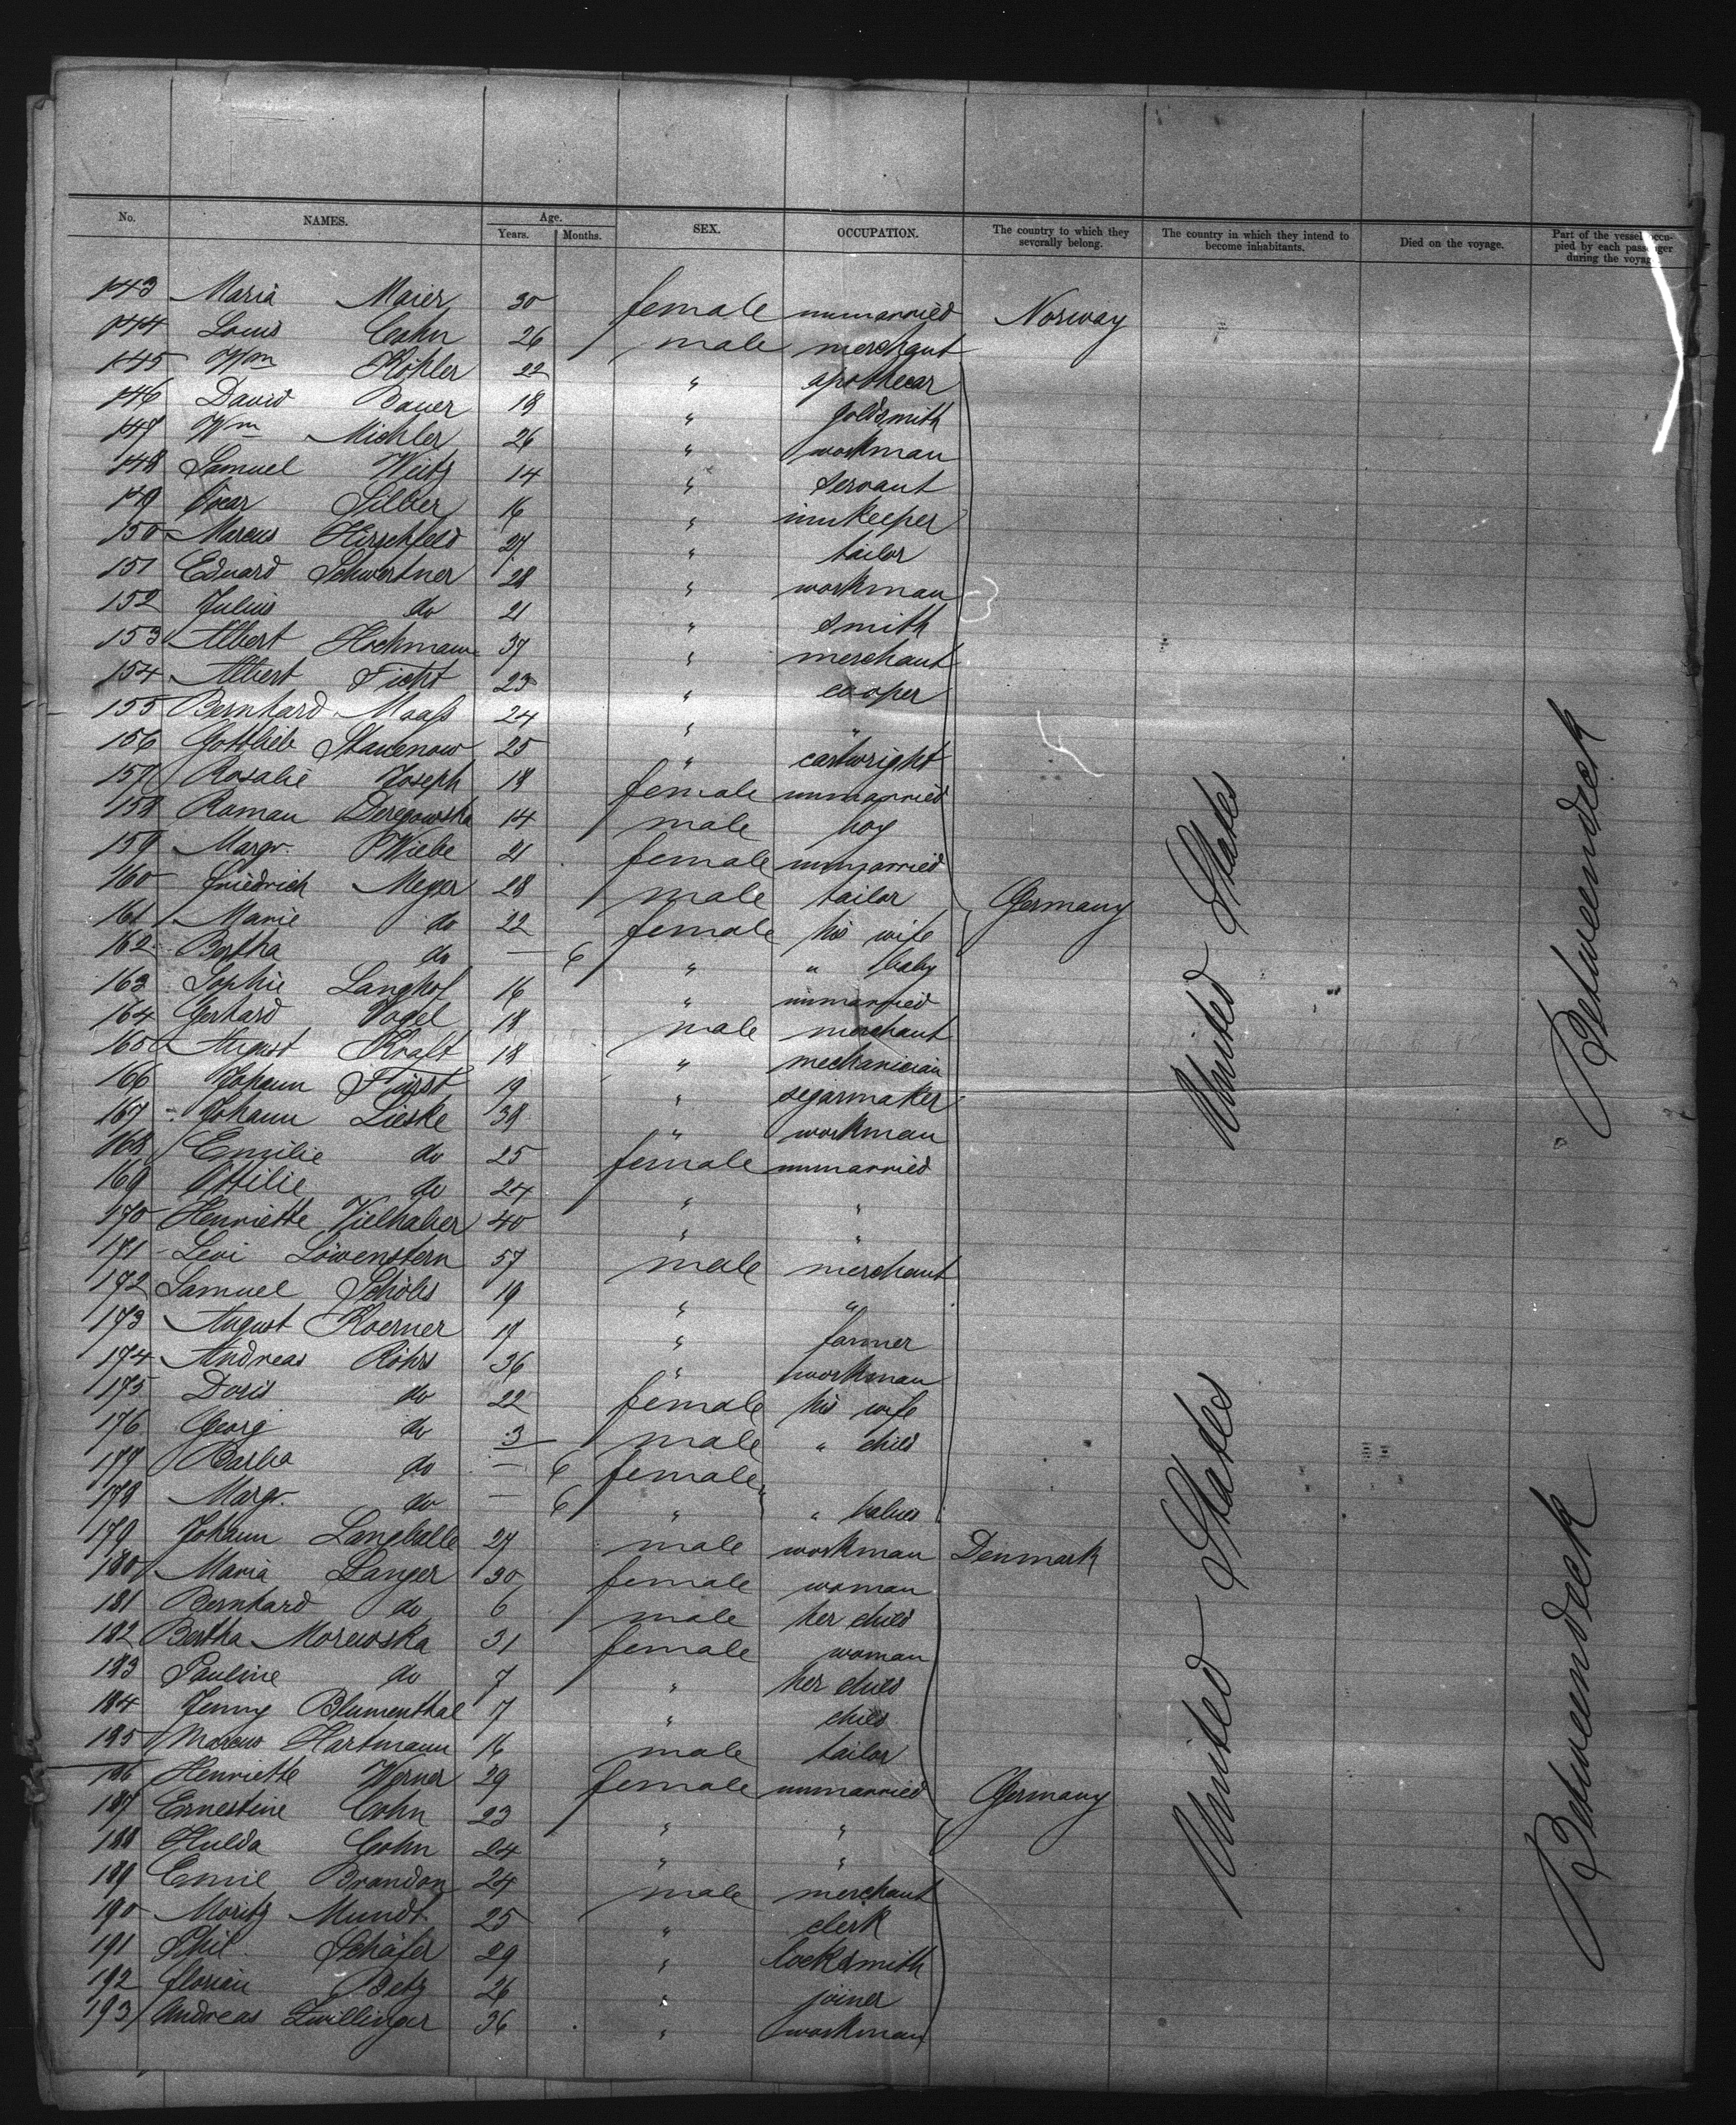 No. NAMES. Age. Years. Months. SEX. OCCUPATION. The country to which they severally belong. The country in which they intend to become inhabitants. Died on the voyage. Part of the vessel occupied by each passenger during the voyage
143 Maria Maier 30 female unmarried Norway
144 Louis Cohn 26 male merchant
145 Wm Köhler 22 " apothecar
146 David Bauer 18 " goldsmith
147 Wm Michler 26 " workman
148 Samuel Weitz 14 " servant
149 Oscar Silber 16 " innkeeper
150 Marcus Hirschfeld 27 " tailor
151 Eduard Schwertner 28 " workman
152 Julius do 21 " smith
153 Albert Hochmann 37 " merchant
154 Albert Ficht 23 " cooper
155 Bernhard Maaß 24 " "
156 Gottlieb Stavenow 25 " cartwright
157 Rosalie Joseph 18 female unmarried
158 Roman Deregowska 14 male boy
159 Margr. Wiebe 21 female unmarried
160 Friedrich Meyer 28 male tailor Germany
161 Marie do 22 female his wife
162 Bertha do — 6 " " baby
163 Sophie Langhof 16 " unmarried
164 Gerhard Vogel 18 male merchant
165 August Kraft 18 " mechanician
166 Johann Fürst 19 " segarmaker
167 Johann Lieske 38 " workman
168 Emilie do 25 female unmarried
169 Ottilie do 24 " "
170 Henriette Vielhaber 40 " "
171 Levi Löwenstern 57 male merchant
172 Samuel Schöls 19 " "
173 August Koerner 17 " farmer
174 Andreas Röhrs 36 " workman
175 Doris do 22 female his wife
176 Georg do 3 male " child
177 Barba do — 6 female
178 Margr. do — 6 " " babies
179 Johann Langballe 27 male workman Denmark
180 Maria Langer 30 female woman
181 Bernhard do 6 male her child
182 Bertha Morewska 31 female woman
183 Pauline do 7 " her child
184 Jenny Blumenthal 7 " child
185 Marcus Hartmann 16 male tailor
186 Henriette Werner 29 female unmarried Germany
187 Ernestine Cohn 23 " "
188 Hulda Cohn 24 " "
189 Emil Brandon 24 male merchant
190 Moritz Mundt 25 " clerk
191 Phil. Schäfer 29 " locksmith
192 Florian Betz 26 " joiner
193 Andreas Zwillinger 36 " workman
United States
United States
Betweendeck
Betweendeck